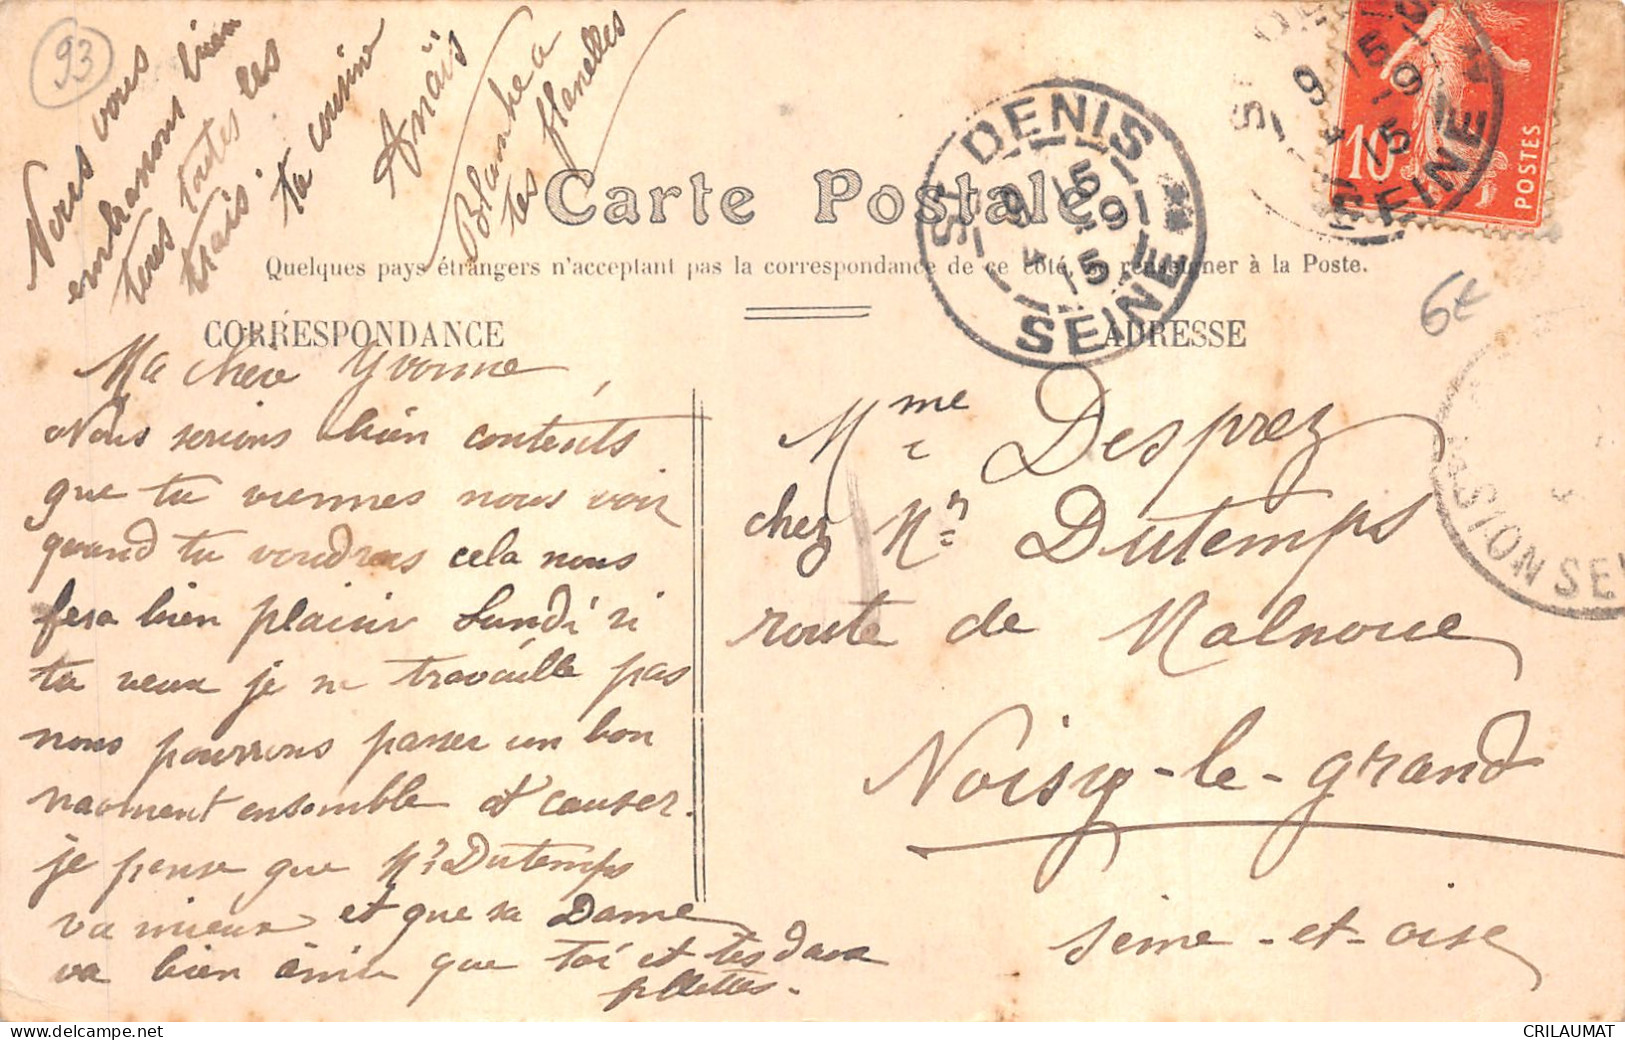 93
Nous vous
embrassons bien
toutes les
trois.
ta cousine
Anaïs
Blanche a
tes flanelles
Carte Postale
Quelques pays étrangers n'acceptant pas la correspondance de ce côté, se renseigner à la Poste.
CORRESPONDANCE
ADRESSE
Ma chère Yvonne,
Nous serions bien contents
que tu viennes nous voir
quand tu voudras cela nous
fera bien plaisir Lundi si
tu veux je ne travaille pas
nous pourrons passer un bon
moment ensemble et causer.
je pense que Mr Dutemps
va mieux et que sa Dame
va bien ainsi que toi et tes deux
fillettes.
Mme Desprez
chez Mr Dutemps
route de Malnoue
Noisy-le-grand
Seine-et-oise
ST DENIS
9 15
5-9
4 15
SEINE
9 15
-9
4 15
SEINE
10
POSTES
6€
CRILAUMAT